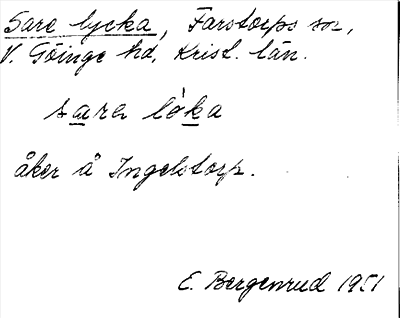 Sare lycka, Farstorps sn,
V. Göinge hd, Krist. län.
sarɐ lò̱ka
åker å Ingelstorp.
E. Bergenrud 1951